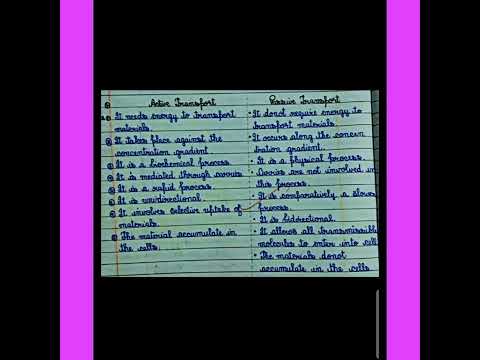 Active Transport
Passive Transport
It needs energy to transport
materials.
It takes place against the
concentration gradient.
It is a biochemical process.
It is mediated through carries
It is a rapid process.
It is unidirectional.
It involves selective uptake of
materials.
The material accumulate in
the cells.
It donot require energy to
transport materials.
It occurs along the concen
tration gradient.
It is a physical process.
Carries are not involved in
the process.
It is comparatively a slower
process.
It is bidirectional.
It allows all transmissible
molecules to enter into cell
The materials donot
accumulate in the cells